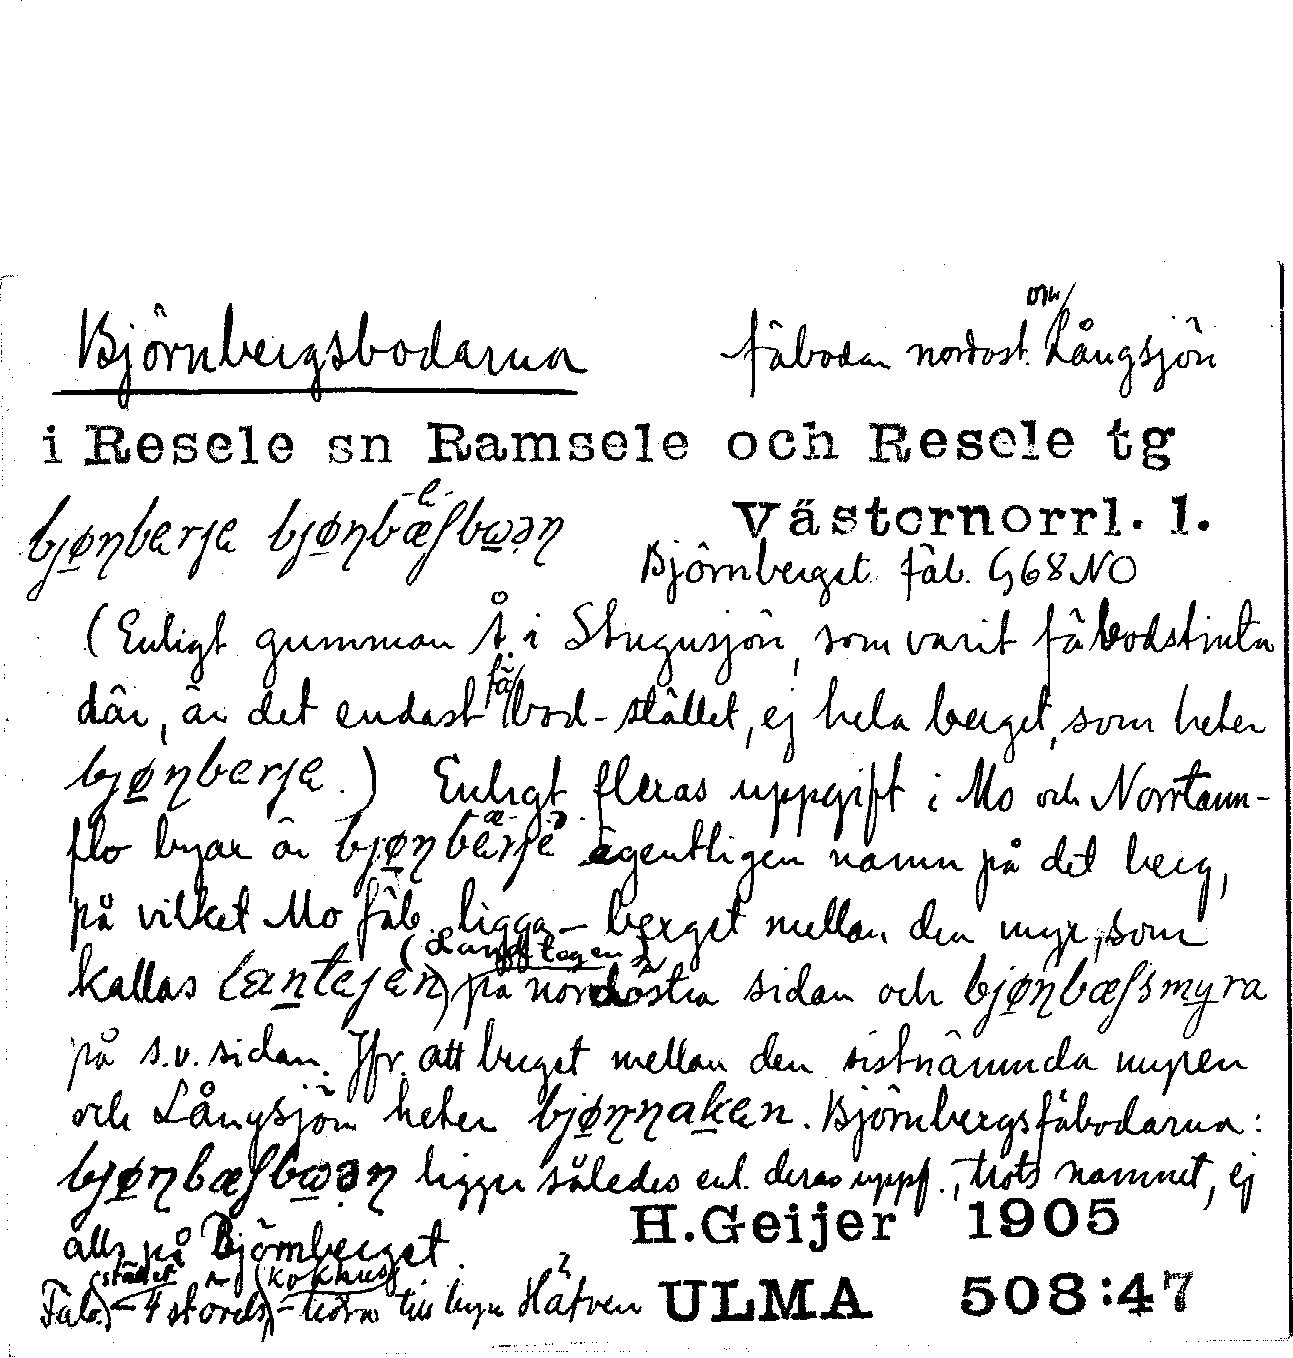 om/
Björnbergsbodarna fäbodar nordost. Långsjön
i Resele sn Ramsele och Resele tg
-e-
bjønberje bjønbæʃbωən Västernorrl. l.
Björnberget fäb. G68NO
(Enligt gumman Å. i Stugusjön, som varit fäbodstinta
där, är det endast fä/bod-stället, ej hela berget, som heter
bjønberje.) Enligt fleras uppgift i Mo och Norrtann-
flo byar är bjønberje egentligen namn på det berg,
på vilket Mo fäb. ligga – berget mellan den myr, som
kallas (Långtegen) på nordöstra sidan och bjønbæʃsmyra
på s.v. sidan. Jfr. att berget mellan den sistnämnda myren
och Långsjön heter bjønnaken. Björnbergsfäbodarna:
bjønbæʃbωən ligger således enl. deras uppg., trots namnet, ej
alls på Björnberget. H. Geijer 1905
(stället (kokhus)
Fäb. – 4 till byn ULMA 508:47